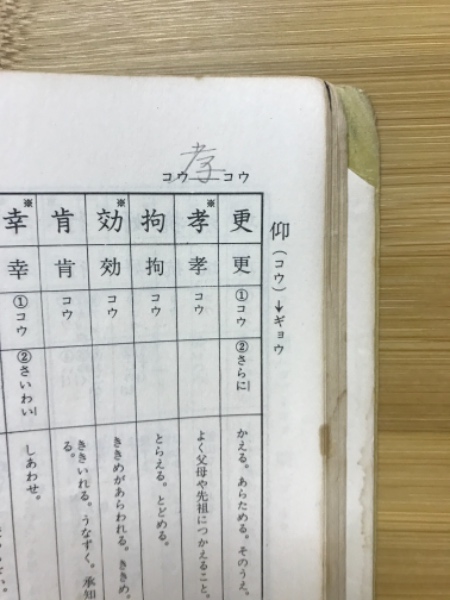 孝
コウ―コウ
仰(コウ)→ギョウ
更 更 ①コウ ②さらに かえる。あらためる。そのうえ。
孝※ 孝 コウ よく父母や先祖につかえること。
拘 拘 コウ とらえる。とどめる。
効※ 効 コウ ききめがあらわれる。ききめ。
肯 肯 コウ ききいれる。うなずく。承知
る。
幸※ 幸 ①コウ ②さいわい しあわせ。